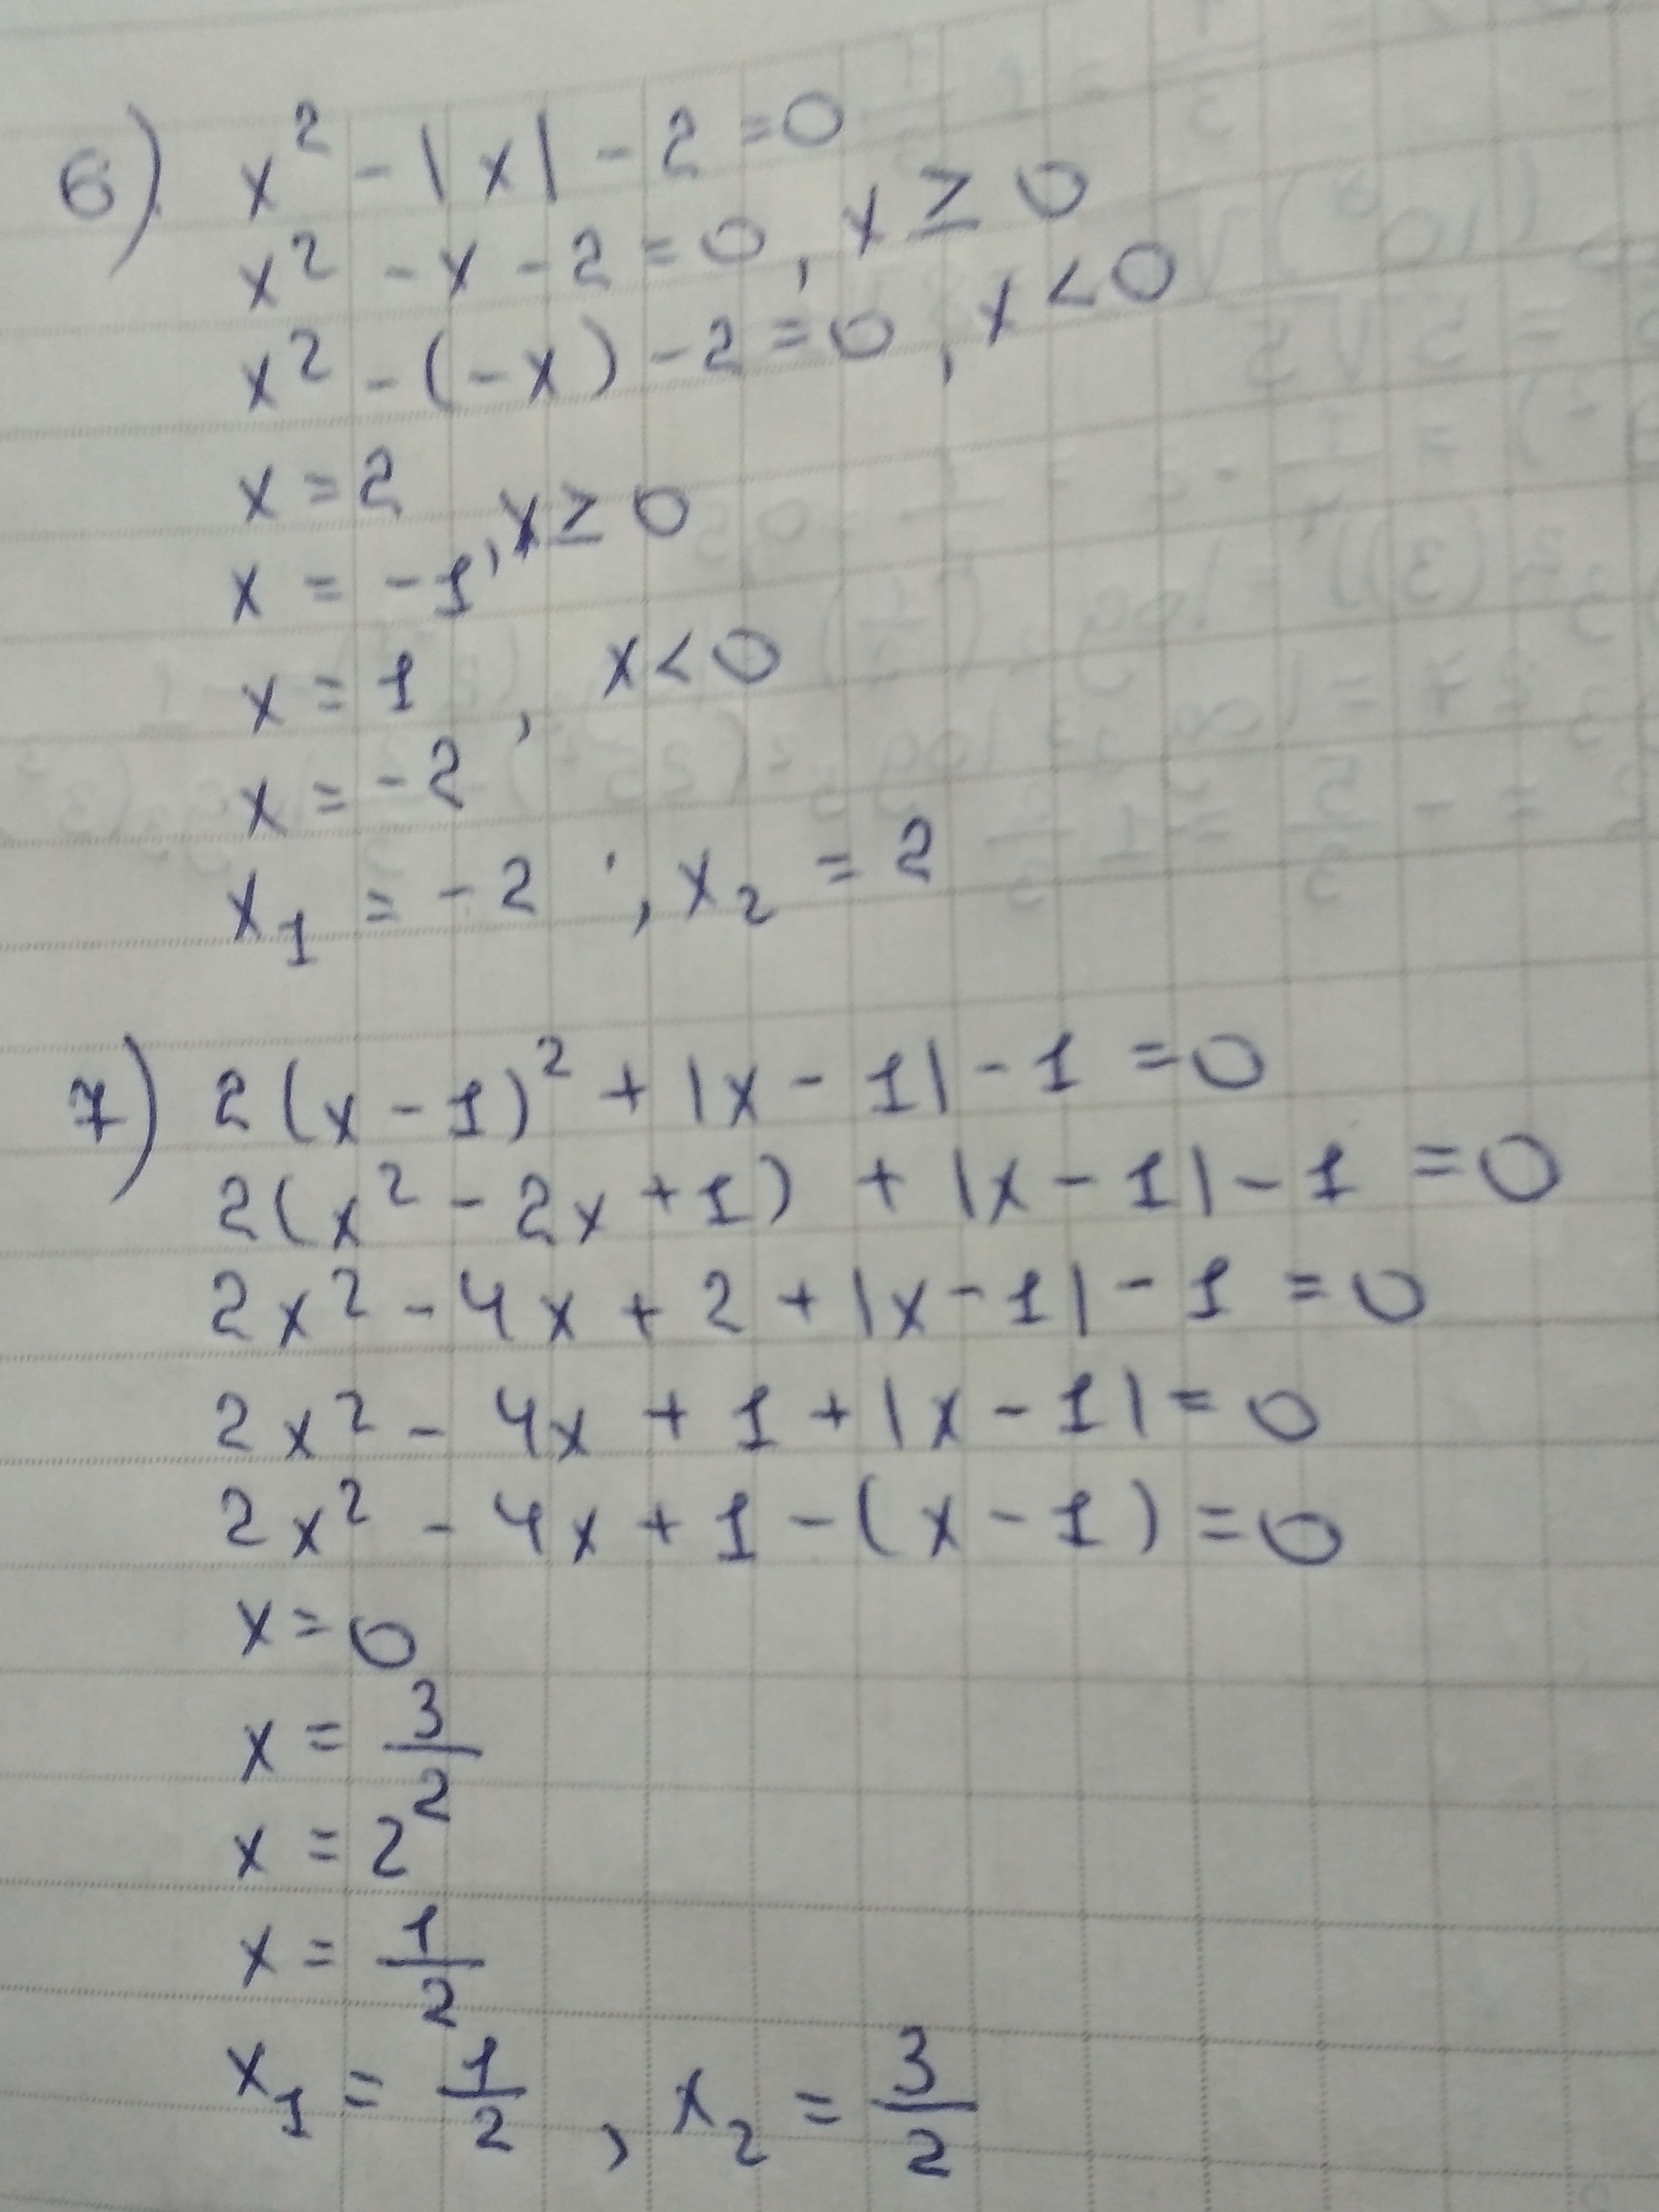 6) x² - |x| - 2 = 0
x² - x - 2 = 0, x ≥ 0
x² - (-x) - 2 = 0, x < 0
x = 2
x = -1, x ≥ 0
x = 1, x < 0
x = -2
x₁ = -2 ; x₂ = 2
7) 2(x - 1)² + |x - 1| - 1 = 0
2(x² - 2x + 1) + |x - 1| - 1 = 0
2x² - 4x + 2 + |x - 1| - 1 = 0
2x² - 4x + 1 + |x - 1| = 0
2x² - 4x + 1 - (x - 1) = 0
x = 0
x = 3/2
x = 2
x = 1/2
x₁ = 1/2 , x₂ = 3/2